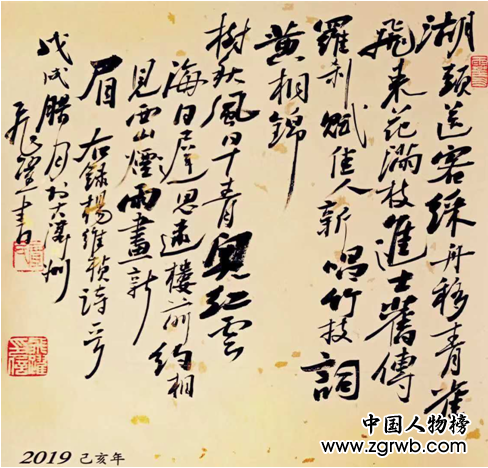 湖頭送客綵舟移青雀
飛來花滿枝進士舊傳
羅刹賦佳人新唱竹枝詞
黄柑錦
樹秋風 青 紅雲
海日遲思遠樓前約相
見西山煙雨畫新
眉 右錄楊維楨詩
戊戌臘月 州
書
中国人物榜
www.zgrwb.com
2019 己亥年